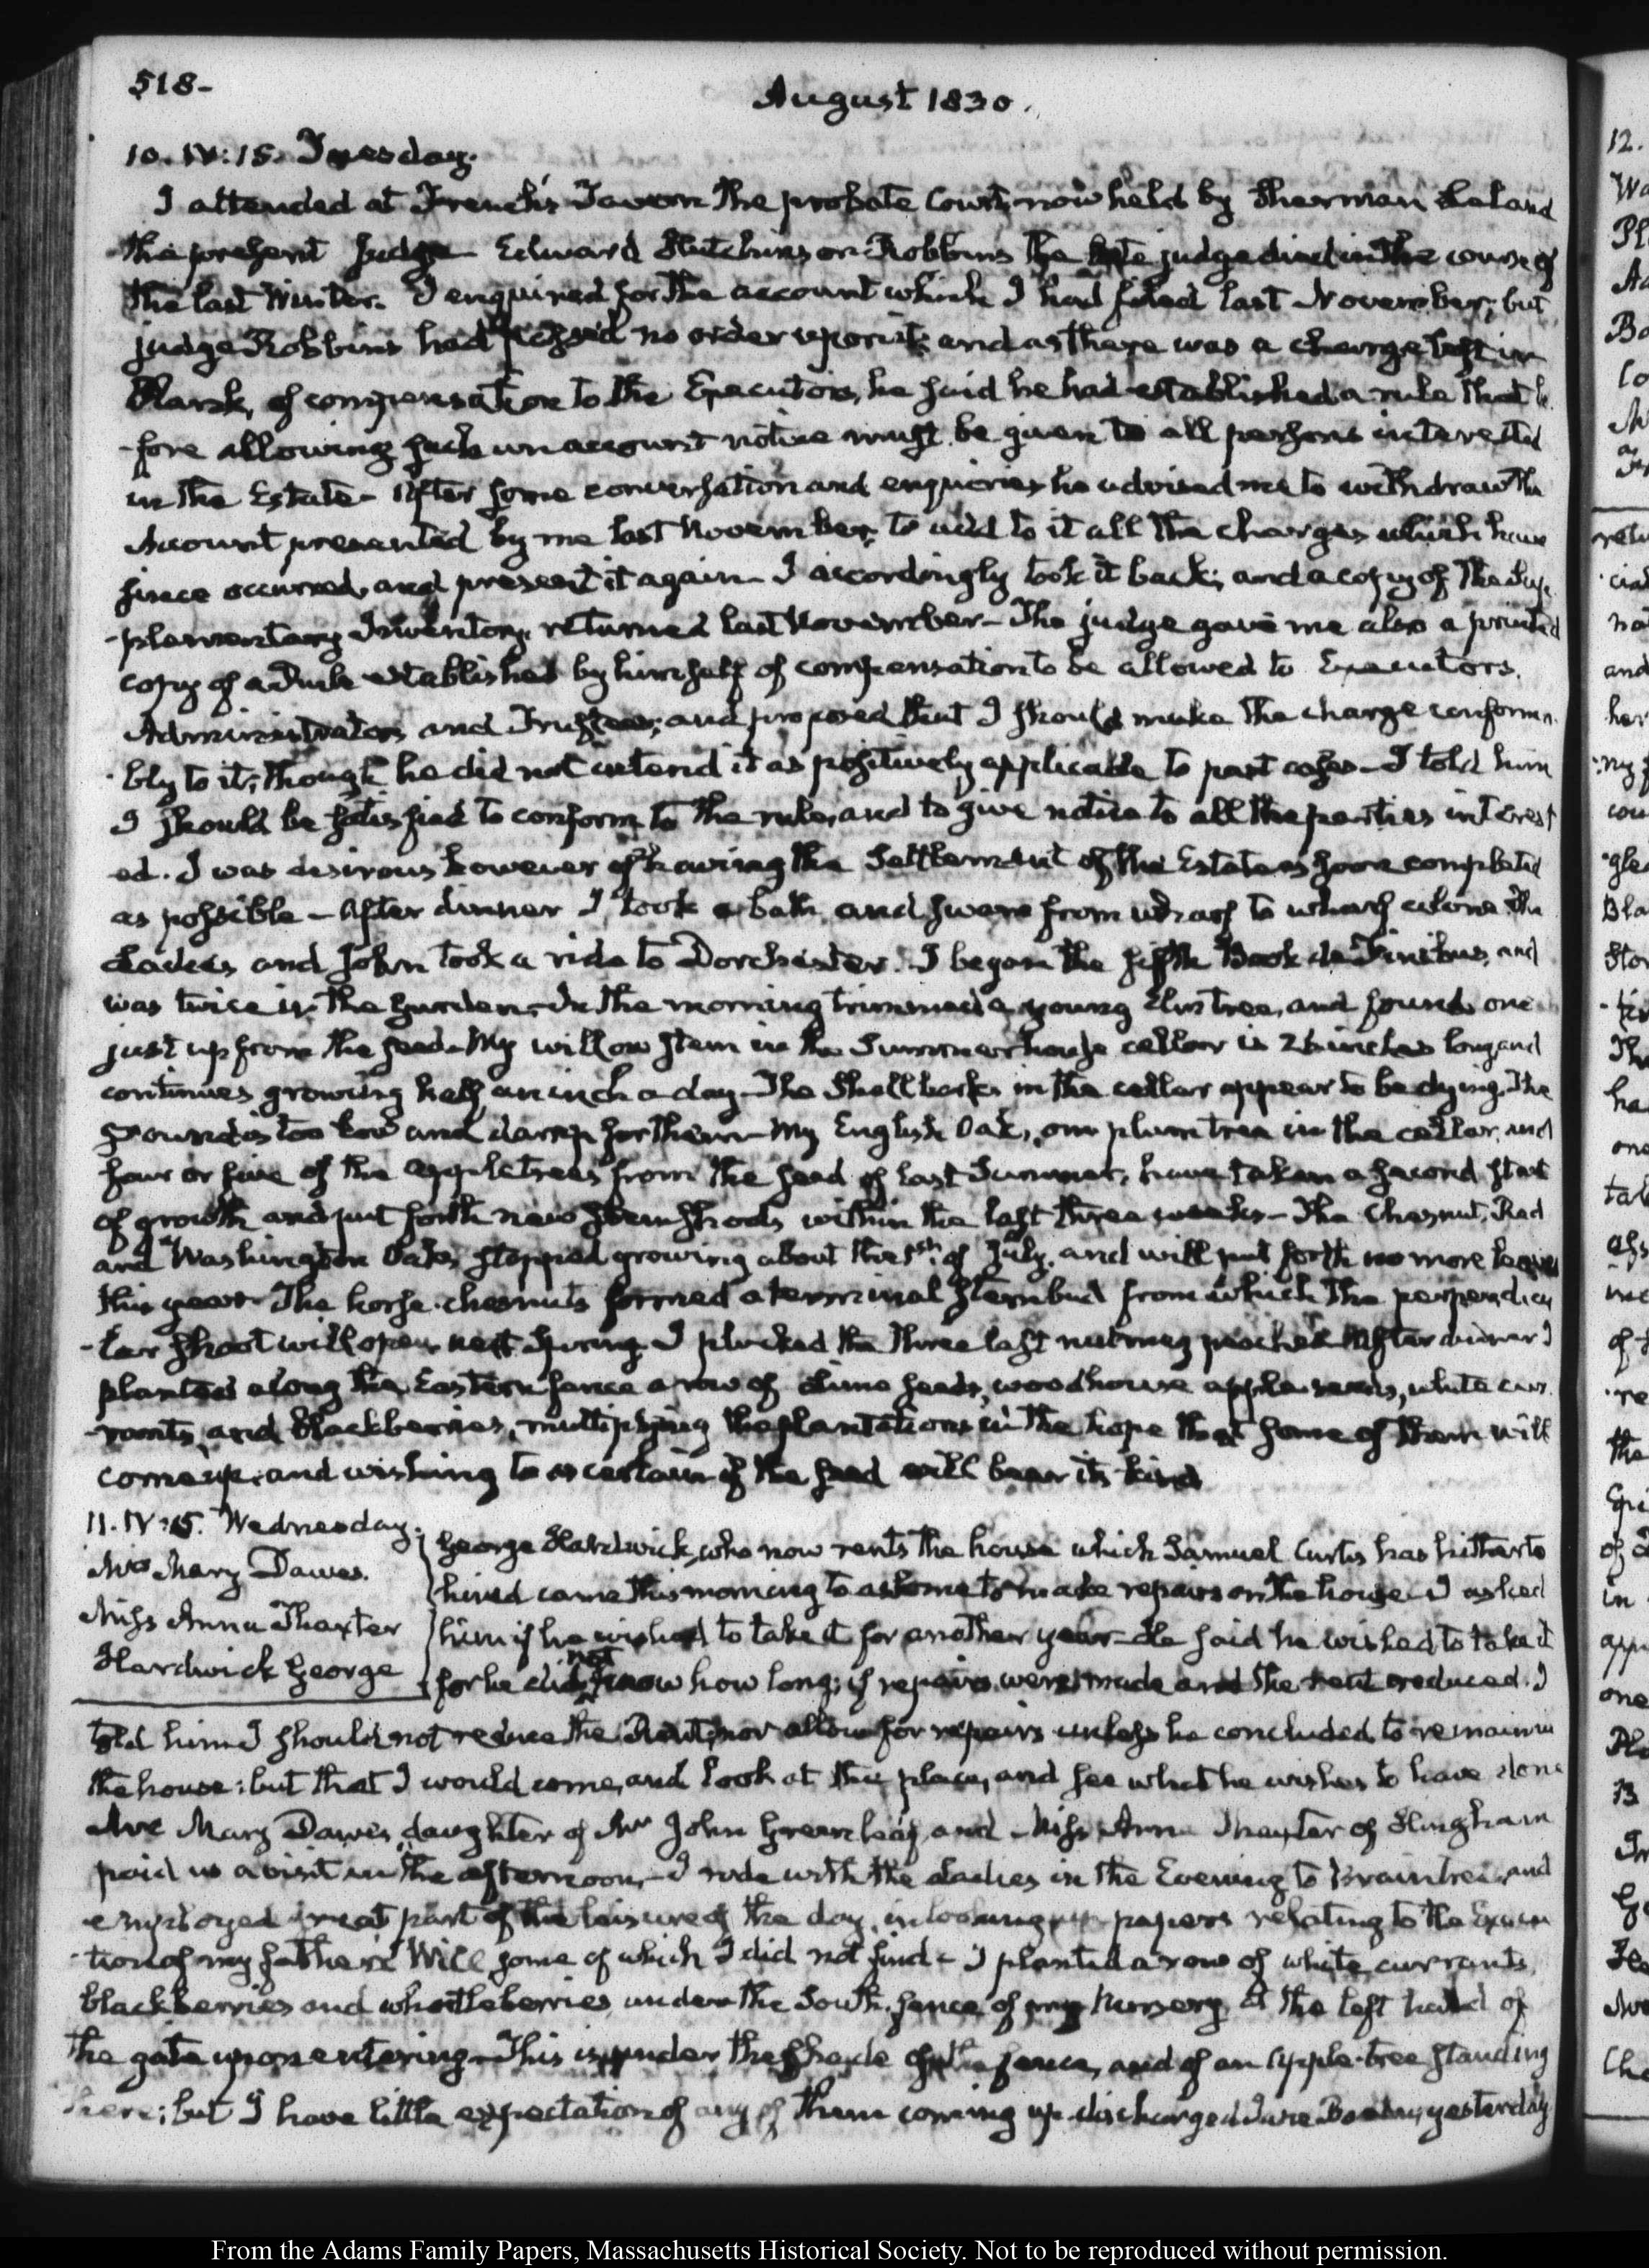 518-
August 1830.
10. IV:15. Tuesday.
I attended at French's Tavern the probate Court, now held by Sherman Leland
the present Judge Edward Hutchinson Robbins the late judge died in the course of
the last Winter. I enquired for the account which I had filed last November; but
judge Robbins had passed no order upon it; and as there was a charge left in
blank, of compensation to the Executors, he said he had established a rule that be
-fore allowing such an account notice must be given to all persons interested
in the Estate- After some conversation and enquiries he advised me to withdraw the
Account presented by me last November, to add to it all the charges which have
since occurred, and present it again- I accordingly took it back; and a copy of the Sup-
-plementary Inventory, returned last November- The judge gave me also a printed
copy of a rule established by himself of compensation to be allowed to Executors,
Administrators and Trustees; and proposed that I should make the charge conforma-
-bly to it; though he did not intend it as positively applicable to past cases- I told him
I should be satisfied to conform to the rule, and to give notice to all the parties interest
ed. I was desirous however of having the Settlement of the Estate as soon completed
as possible- After dinner I took a bath, and swam from wharf to wharf alone. The
Ladies and John took a ride to Dorchester. I began the fifth Book de Finibus, and
was twice in the garden- In the morning trimmed a young Elm tree, and found one
just up from the seed- My willow stem in the Summerhouse cellar is 26 inches long and
continues growing half an inch a day- The Shellbarks in the cellar appear to be dying. The
ground is too low and damp for them- My English Oak, one plum tree in the cellar, and
four or five of the appletrees from the seed of last Summer, have taken a second start
of growth and put forth new stem shoots within the last three weeks- The Chesnut, Red
and Washington Oaks stopped growing about the 1st. of July, and will put forth no more leaves
this year- The horse-chesnuts formed a terminal stem bud from which the perpendicu
-lar shoot will open next Spring- I plucked the three last nutmeg peaches- After dinner I
planted along the Eastern fence a row of Lime seeds, woodhouse apple seeds, white cur
-rants, and blackberries, multiplying the plantations in the hope that some of them will
come up; and wishing to ascertain if the seed will bear its kind
11. IV:15. Wednesday.
Mrs Mary Dawes.
Miss Anna Thaxter
Hardwick George
George Hardwick, who now rents the house which Samuel Curtis has hitherto
hired came this morning to ask me to make repairs on the house- I asked
him if he wished to take it for another year- He said he wished to take it
for he did not know how long; if repairs were made and the rent reduced. I
told him I should not reduce the Rent, nor allow for repairs unless he concluded to remain in
the house: but that I would come, and look at the place, and see what he wishes to have done
Mrs Mary Dawes, daughter of Mr John Greenleaf, and Miss Anna Thaxter of Hingham
paid us a visit in the afternoon- I rode with the Ladies in the Evening to Braintree, and
employed great part of the leisure of the day, in looking up papers relating to the Execu
-tion of my father's Will some of which I did not find- I planted a row of white currants,
blackberries and whortleberries under the South fence of my Nursery, at the left hand of
the gate upon entering- This is under the shade of the fence, and of an apple-tree standing
here; but I have little expectation of any of them coming up- discharged yesterday
From the Adams Family Papers, Massachusetts Historical Society. Not to be reproduced without permission.